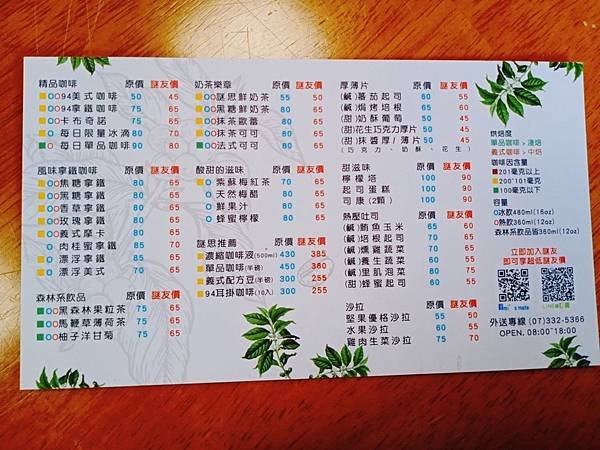 精品咖啡 原價 謎友價
OO94美式咖啡 50 45
OO94拿鐵咖啡 75 65
OO卡布奇諾 75 65
O 每日限量冰滴 80 70
O 每日單品咖啡 90 80
風味拿鐵咖啡 原價 謎友價
OO焦糖拿鐵 80 65
OO黑糖拿鐵 80 65
OO香草拿鐵 80 65
OO玫瑰拿鐵 80 65
OO義式摩卡 80 65
O 肉桂蜜拿鐵 85 70
O 漂浮拿鐵 85 70
O 漂浮美式 80 65
森林系飲品 原價 謎友價
OO黑森林果粒茶 75 65
OO馬鞭草薄荷茶 75 65
OO柚子洋甘菊 75 65
奶茶樂章 原價 謎友價
OO謎思鮮奶茶 55 50
OO黑糖鮮奶茶 80 65
OO抹茶歐蕾 80 65
OO抹茶可可 80 65
OO法式可可 80 65
酸甜的滋味 原價 謎友價
O 紫蘇梅紅茶 70 65
O 天然梅醋 80 65
O 鮮果汁 80 65
O 蜂蜜檸檬 80 65
謎思推薦 原價 謎友價
濃縮咖啡液(500ml) 430 385
單品咖啡(半磅) 450 360
義式配方豆(半磅) 300 255
94耳掛咖啡(10入) 300 255
厚薄片 原價 謎友價
(鹹)蕃茄起司 60 55
(鹹)焗烤培根 65 60
(甜)奶酥葡萄 50 45
(甜)花生巧克力厚片 50 45
(甜)抹醬厚/薄片 50 45
(巧克力、奶酥、花生)
甜滋味 原價 謎友價
檸檬塔 100 90
起司蛋糕 100 90
司康(2顆) 100 90
熱壓吐司 原價 謎友價
(鹹)鮪魚玉米 65 60
(鹹)培根起司 65 60
(鹹)燻雞蔬菜 65 60
(鹹)養生蔬菜 60 55
(鹹)里肌泡菜 80 75
(甜)蜂蜜起司 65 60
沙拉 原價 謎友價
堅果優格沙拉 60 55
水果沙拉 60 55
雞肉生菜沙拉 75 70
烘焙度
單品咖啡>淺焙
義式咖啡>中焙
咖啡因含量
201毫克以上
200~101毫克
100毫克以下
容量
O冰飲480ml(16oz)
O熱飲360ml(12oz)
森林系飲品皆360ml(12oz)
立即加入謎友
即可享超低謎友價
外送專線 (07)332-5366
OPEN. 08:00~18:00